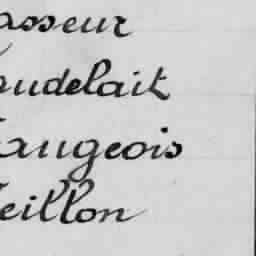 asseur
audelait
augeois
eillon